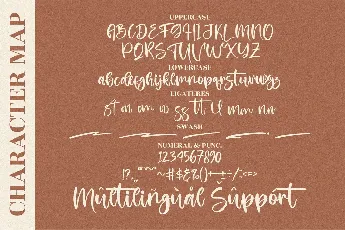 CHARACTER MAP
UPPERCASE
ABCDEFGHIJKLMNO
PQRSTUVWXYZ
LOWERCASE
abcdefghijklmnopqrstuvwxyz
LIGATURES
st at om os ss tt ll mm nn
SWASH
NUMERAL & PUNC.
1234567890
Múltilíngúál Súpport